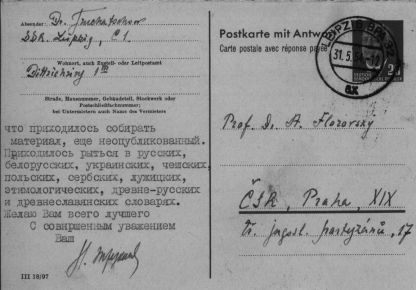 Absender: Dr.
DDR. Leipzig, C 1.
Wohnort, auch Zustell- oder Leitpostamt
Dittrichring
Straße, Hausnummer, Gebäudeteil, Stockwerk oder
Postschließfachnummer;
bei Untermietern auch Name des Vermieters
что приходилось собирать
материал, еще неопубликованный.
Приходилось рыться в русских,
белорусских, украинских, чешских,
польских, сербских, лужицких,
этимологических, древне-русских
и древнеславянских словарях.
Желаю Вам всего лучшего
С совершенным уважением
Ваш
III 18/97
Postkarte mit Antwo
Carte postale avec réponse payé
LEIPZIG
31.5.
Prof. Dr. A. Florovsky
ČSR, Praha, XIX
Tř. jugosl. partyzánů, 17